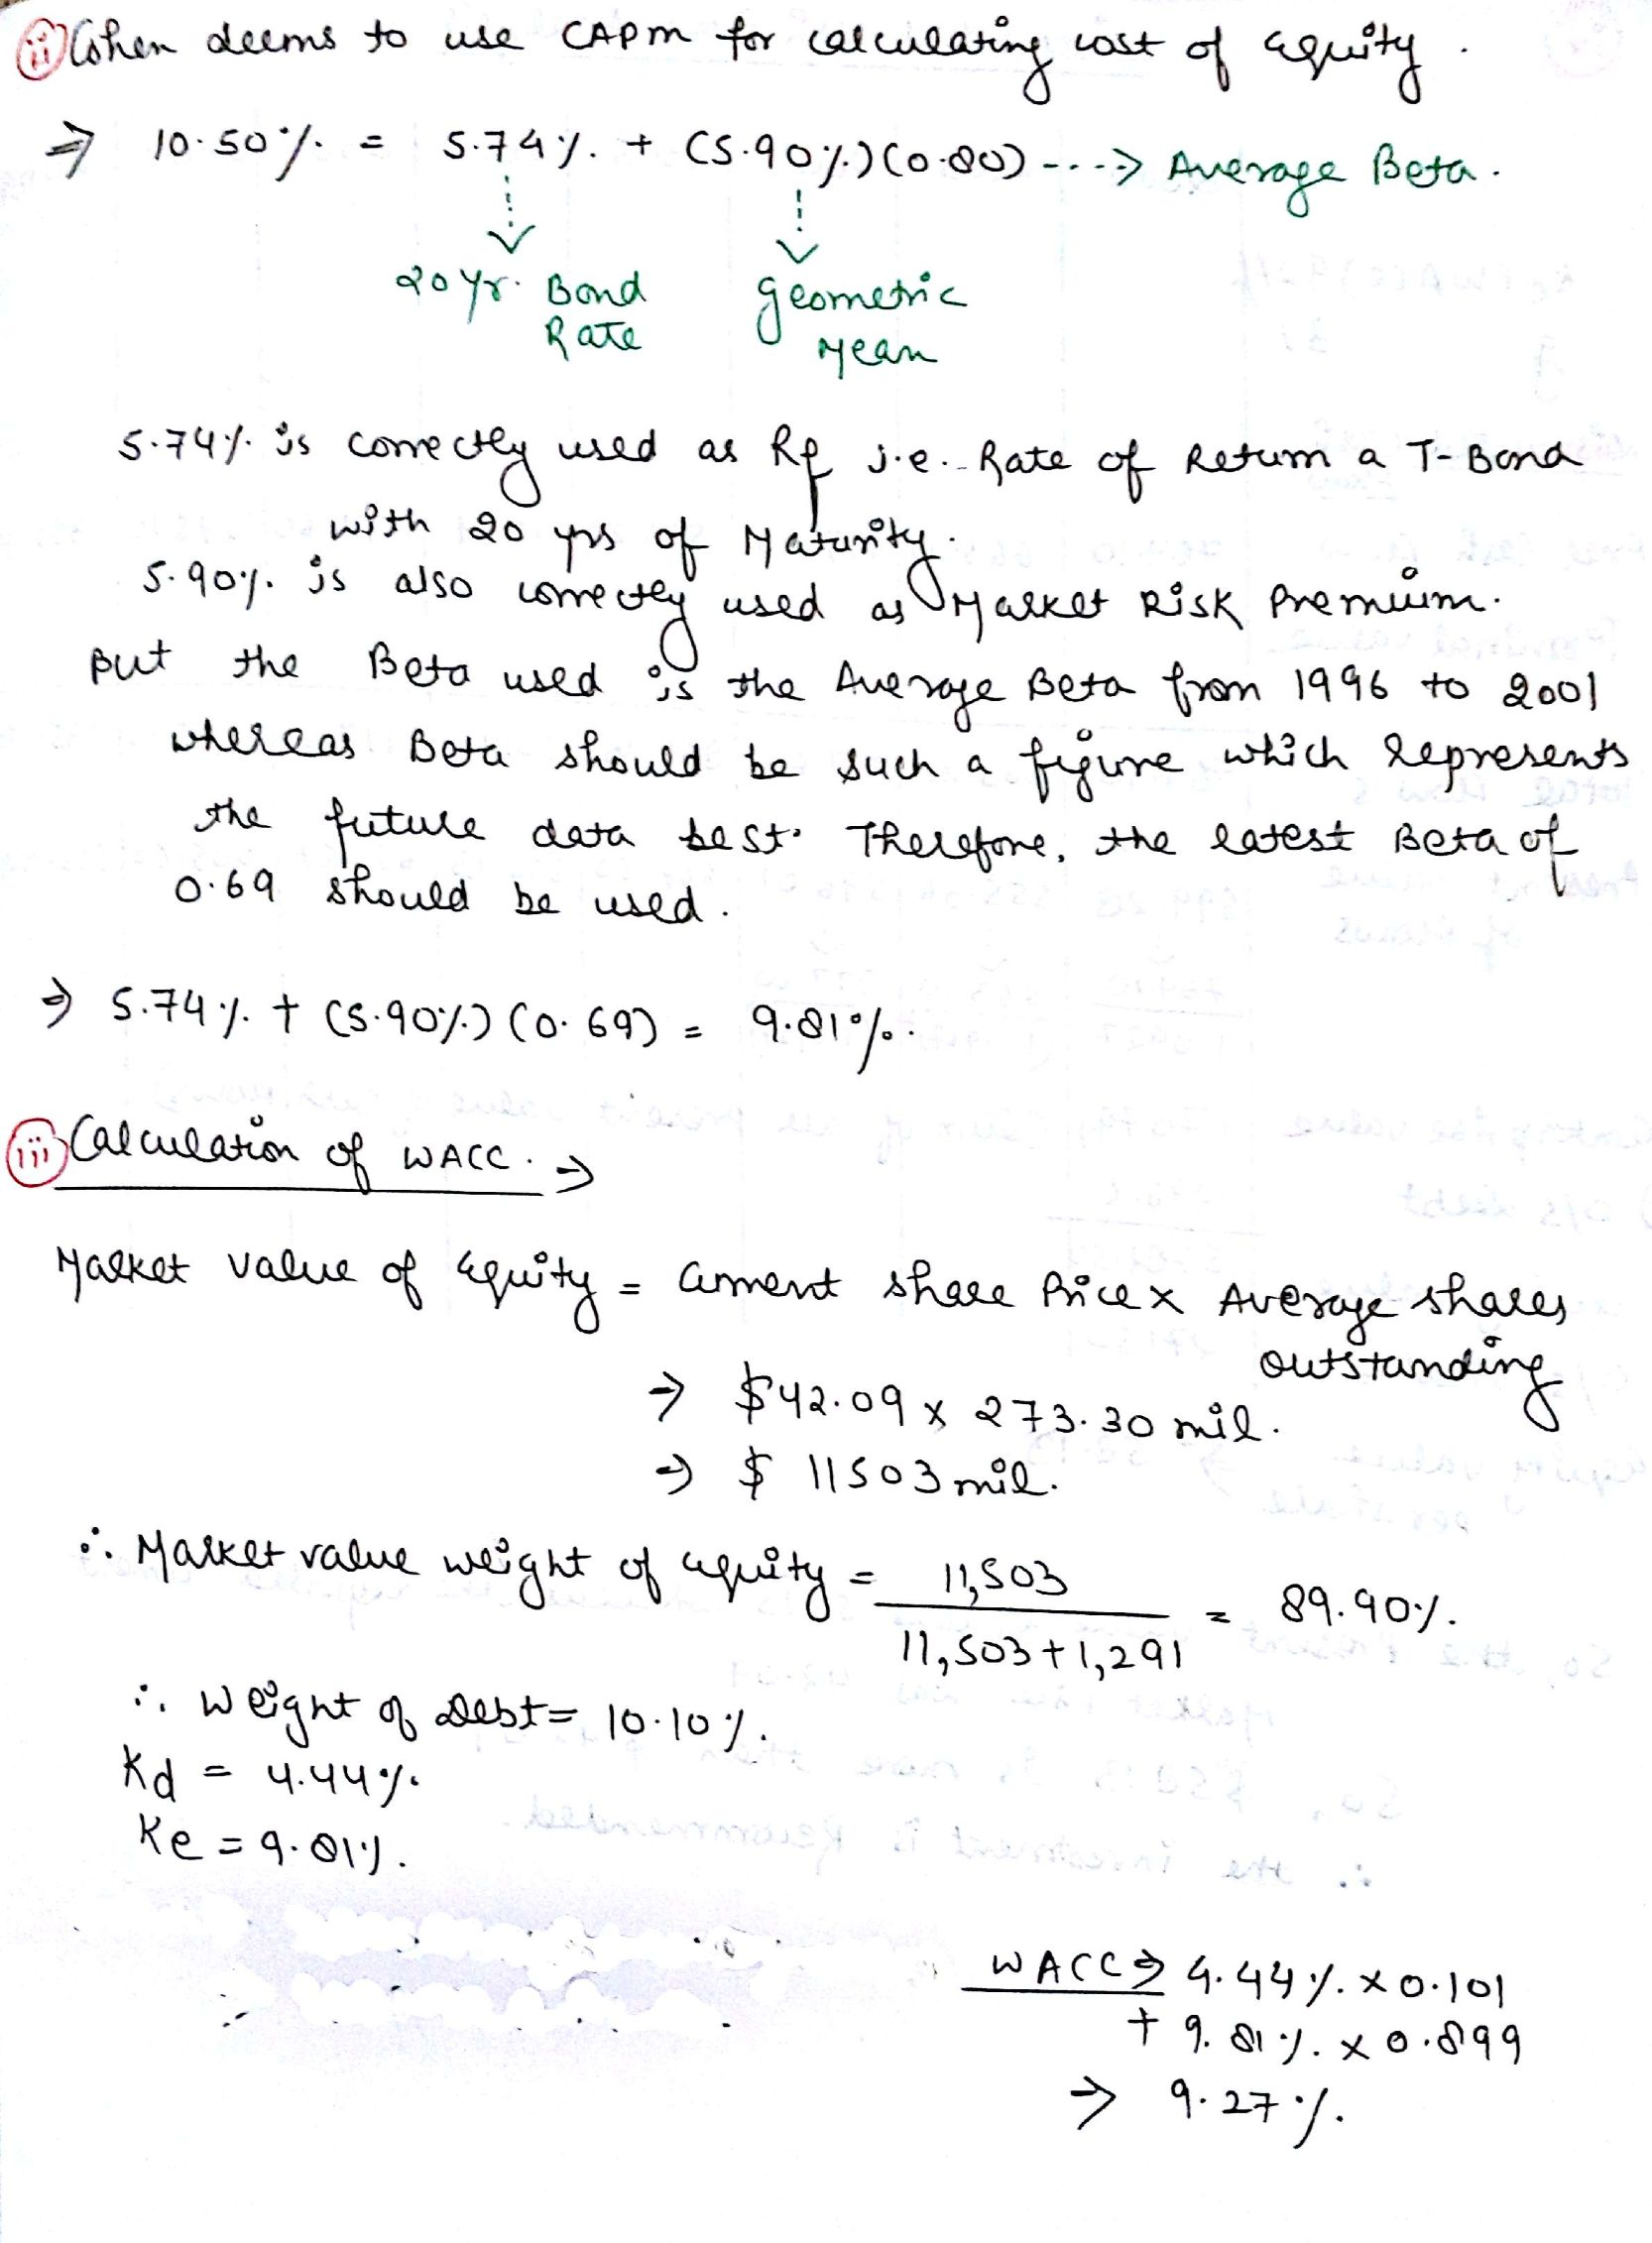 (ii) Cohen deems to use CAPM for calculating cost of Equity.
⇒ 10.50% = 5.74% + (5.90%)(0.80) ---> Average Beta.
20 yr. Bond Rate
Geometric Mean
5.74% is correctly used as Rf i.e. Rate of Return a T-Bond
with 20 yrs of Maturity.
5.90% is also correctly used as Market Risk Premium.
But the Beta used is the Average Beta from 1996 to 2001
whereas Beta should be such a figure which represents
the future data best. Therefore, the latest Beta of
0.69 should be used.
⇒ 5.74% + (5.90%) (0.69) = 9.81%.
(iii) Calculation of WACC. →
Market value of Equity = Current share Price x Average shares
outstanding
→ $42.09 x 273.30 mil.
⇒ $ 11503 mil.
∴ Market value weight of equity = 11,503 / 11,503 + 1,291 = 89.90%.
∴ Weight of Debt = 10.10%.
Kd = 4.44%
Ke = 9.81%.
WACC → 4.44% x 0.101
+ 9.81% x 0.899
→ 9.27%.